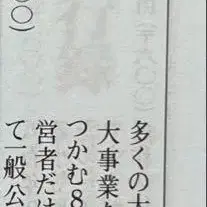 多くの
大事業
つかむ8
営者だけ
て一般公
〇〇）